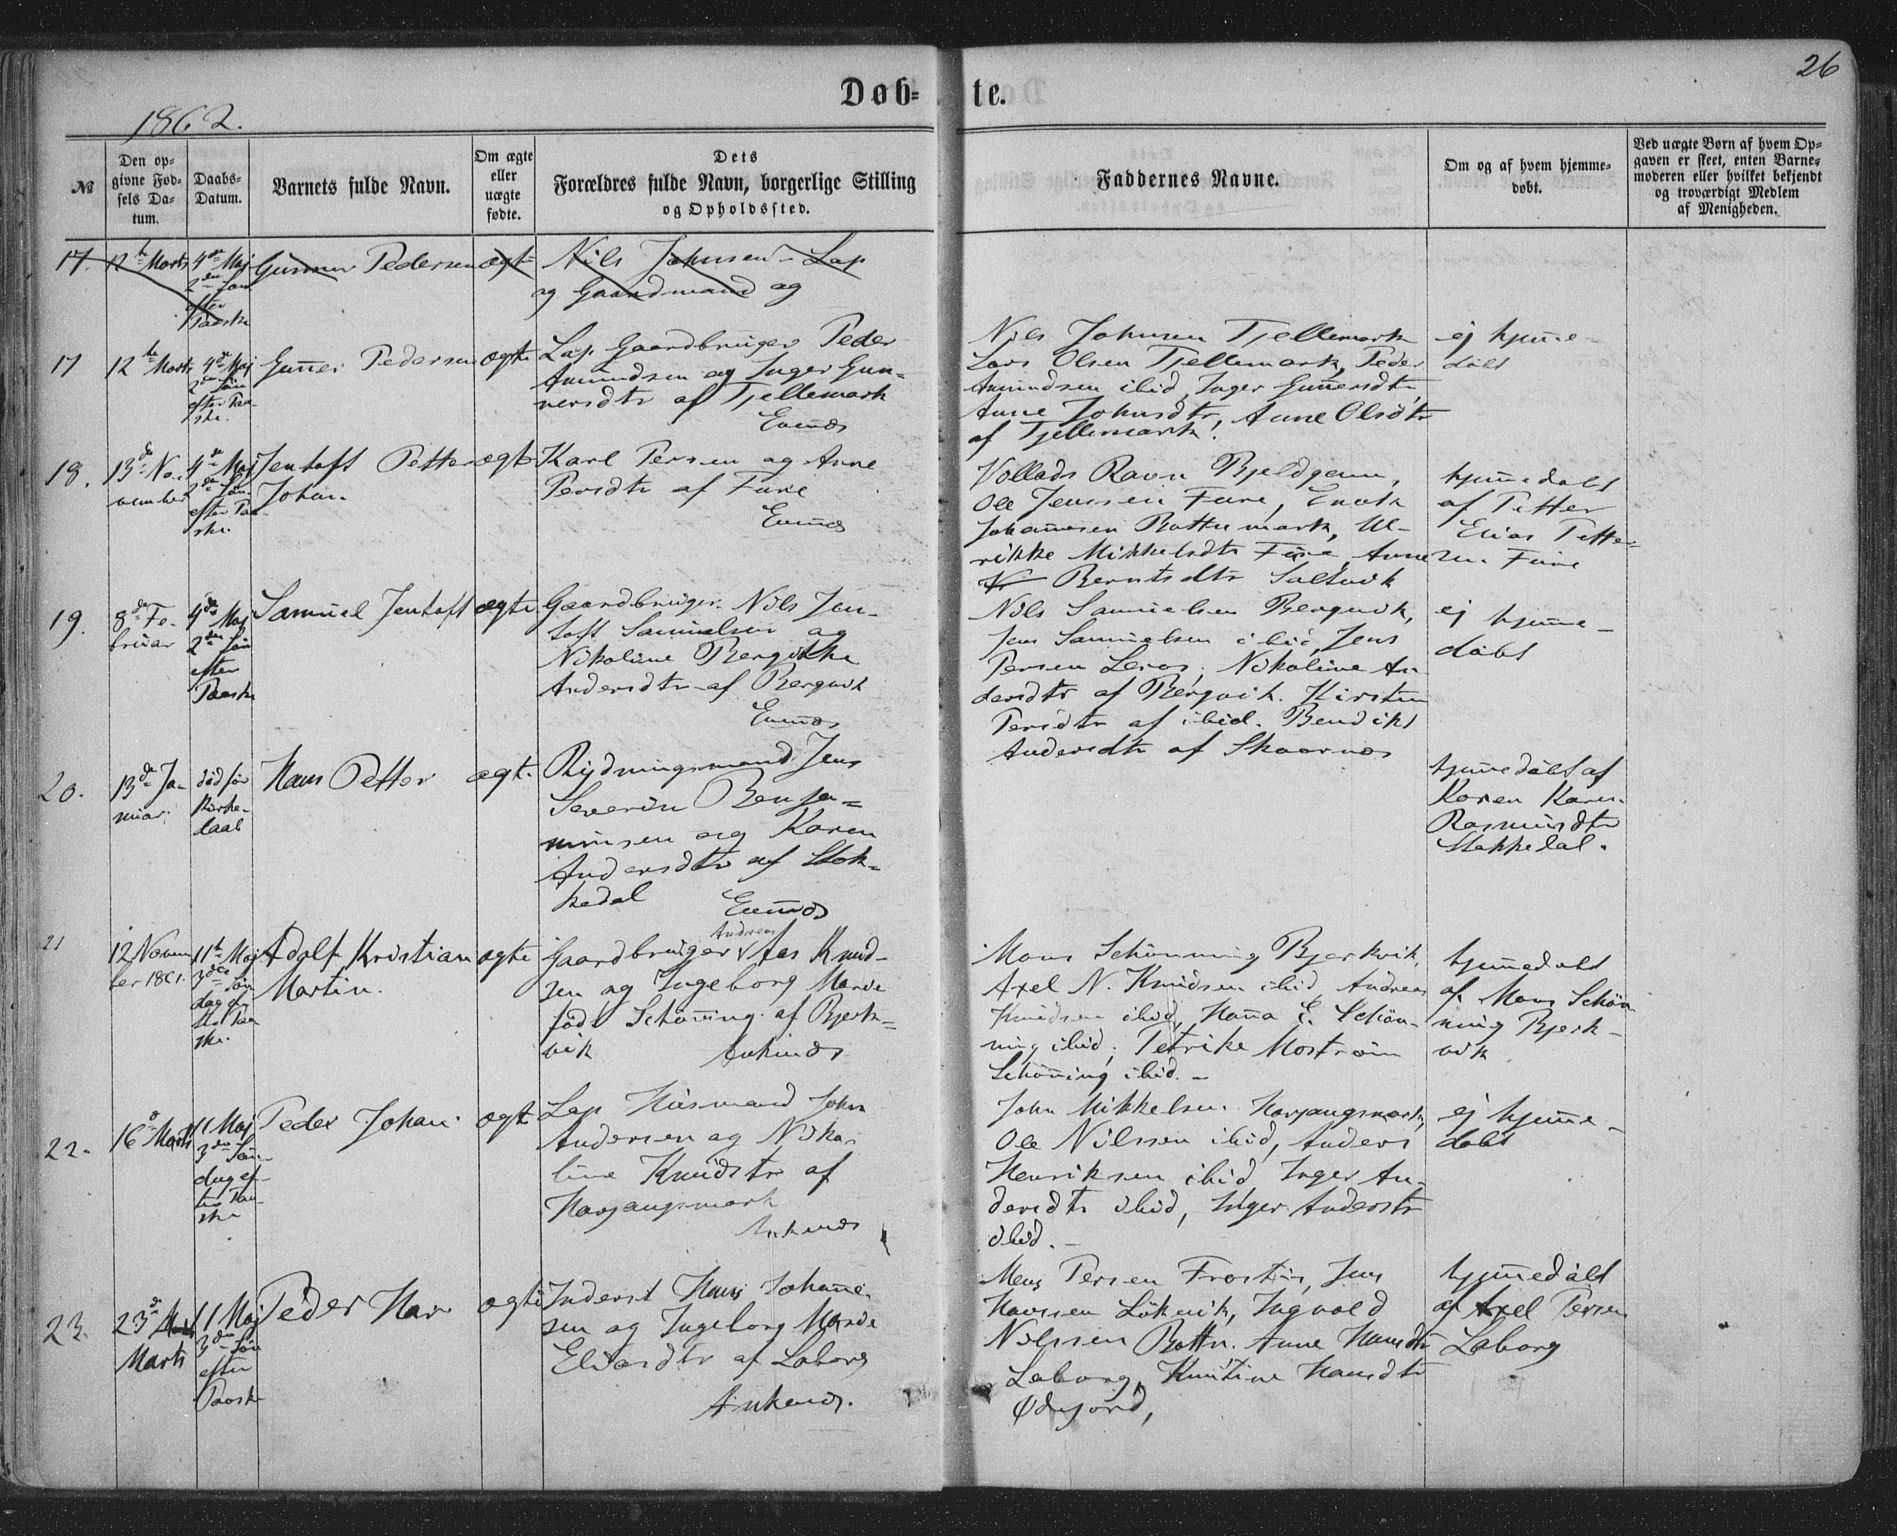 26
Døb-te.
1862.
№
Den op-
givne Fød-
sels Da-
tum.
Daabs-
Datum.
Barnets fulde Navn.
Om ægte
eller
uægte
fødte.
Dets
Forældres fulde Navn, borgerlige Stilling
og Opholdssted.
Faddernes Navne.
Om og af hvem hjemme-
døbt.
Ved uægte Børn af hvem Op-
gaven er skeet, enten Barne-
moderen eller hvilket bekjendt
og troværdigt Medlem
af Menigheden.
17. 12te Marts 4de Maj Gunner Pedersen ægte Nils Johnsen - Lap
2den Søn
efter
Paaske
og Gaardmand og
17 12te Marts 4de Maj
2den Søn
efter Paa-
ske.
Gunner Pedersen ægte
Lap. Gaardbruger Peder
Amundsen og Inger Gun-
nersdtr af Tjellemark
Evenæs
Nils Johnsen Tjellemark
Lars Olsen Tjellemark, Peder
Amundsen ibid, Inger Gunnersdtr
Anne Johnsdtr, Anne Olsdtr
af Tjellemark.
ej hjemme-
døbt
18. 13de No-
vember
4de Maj
2den Søn
efter Paa-
ske.
Jentoft Petter
Johan
ægte
Karl Persen og Anne
Persdtr af Fure
Evenæs
Vollads Ravn Bjeldgam,
Ole Jenssen Fure, Enok
Johannesen Bottnmark, Ul-
rikke Mikkelsdtr Fure, Anne
Berntsdtr Saltvik
hjemmedøbt
af Petter
Elias Petter-
sen Fure
19. 8de Fe-
bruar
4de Maj
2den Søn
efter
Paaske
Samuel Jentoft ægte
Gaardbruger. Nils Jen-
toft Samuelsen og
Nikoline Bergitthe
Andersdtr af Bergvik
Evenæs
Nils Samuelsen Bergvik,
Jens Samuelsen ibid, Jens
Persen Lenes, Nikoline An-
dersdtr af Bergvik. Kirsten
Persdtr af ibid. Bendikt
Andersdtr af Skaarnes
ej hjemme-
døbt
20. 13de Ja-
nuar.
død før
Kirke-
daab
Hans Petter ægte.
Rydningsmand Jens
Severin Benja-
minsen og Karen
Andersdtr af Stok-
kedal
Evenæs
hjemmedøbt af
Karen Karn.
Rasmusdtr
Stokkedal.
21 12 Novem
ber 1861.
11te Maj
3die Søn
dag ef-
ter Paa
ske.
Adolf Kristian
Martin.
ægte
Andreas
Gaardbruger Aas Knud-
sen og Ingeborg Marie
født Schønning af Bjerk-
vik Ankenæs
Mons Schønning Bjerkvik,
Axel N. Knudsen ibid, Andreas
Knudsen ibid, Hanna E. Schøn-
ning ibid, Petrike Mostrøm
Schønning ibid. -
hjemmedøbt
af Mons Schøn-
ning Bjerk-
vik.
22. 16de Marts
11 Maj
3die Søn-
dag ef-
ter Paa-
ske
Peder Johan. ægte
Lap Husmand John
Andersen og Niko-
line Knudsdtr af
Harjangsmark
Ankenæs
John Mikkelsen Harjangsmark,
Ole Nilssen ibid, Anders
Henriksen ibid, Inger An-
dersdtr ibid, Inger Andersdtr
ibid. -
ej hjemme-
døbt
23. 23de
Marts
11 Maj
3die Søn
efter
Paaske
Peder Har ægte
Inderst Hans Johanne-
sen og Ingeborg Marie
Eliasdtr af Laberg
Ankenæs.
Mons Persen Frostis, Jens
Hanssen Løkvik, Ingvald
Nilssen Bottn. Anne Hansdtr
Laberg, Knutine Hansdtr
Ødejord,
hjemmedøbt
af Axel Persen
Laberg